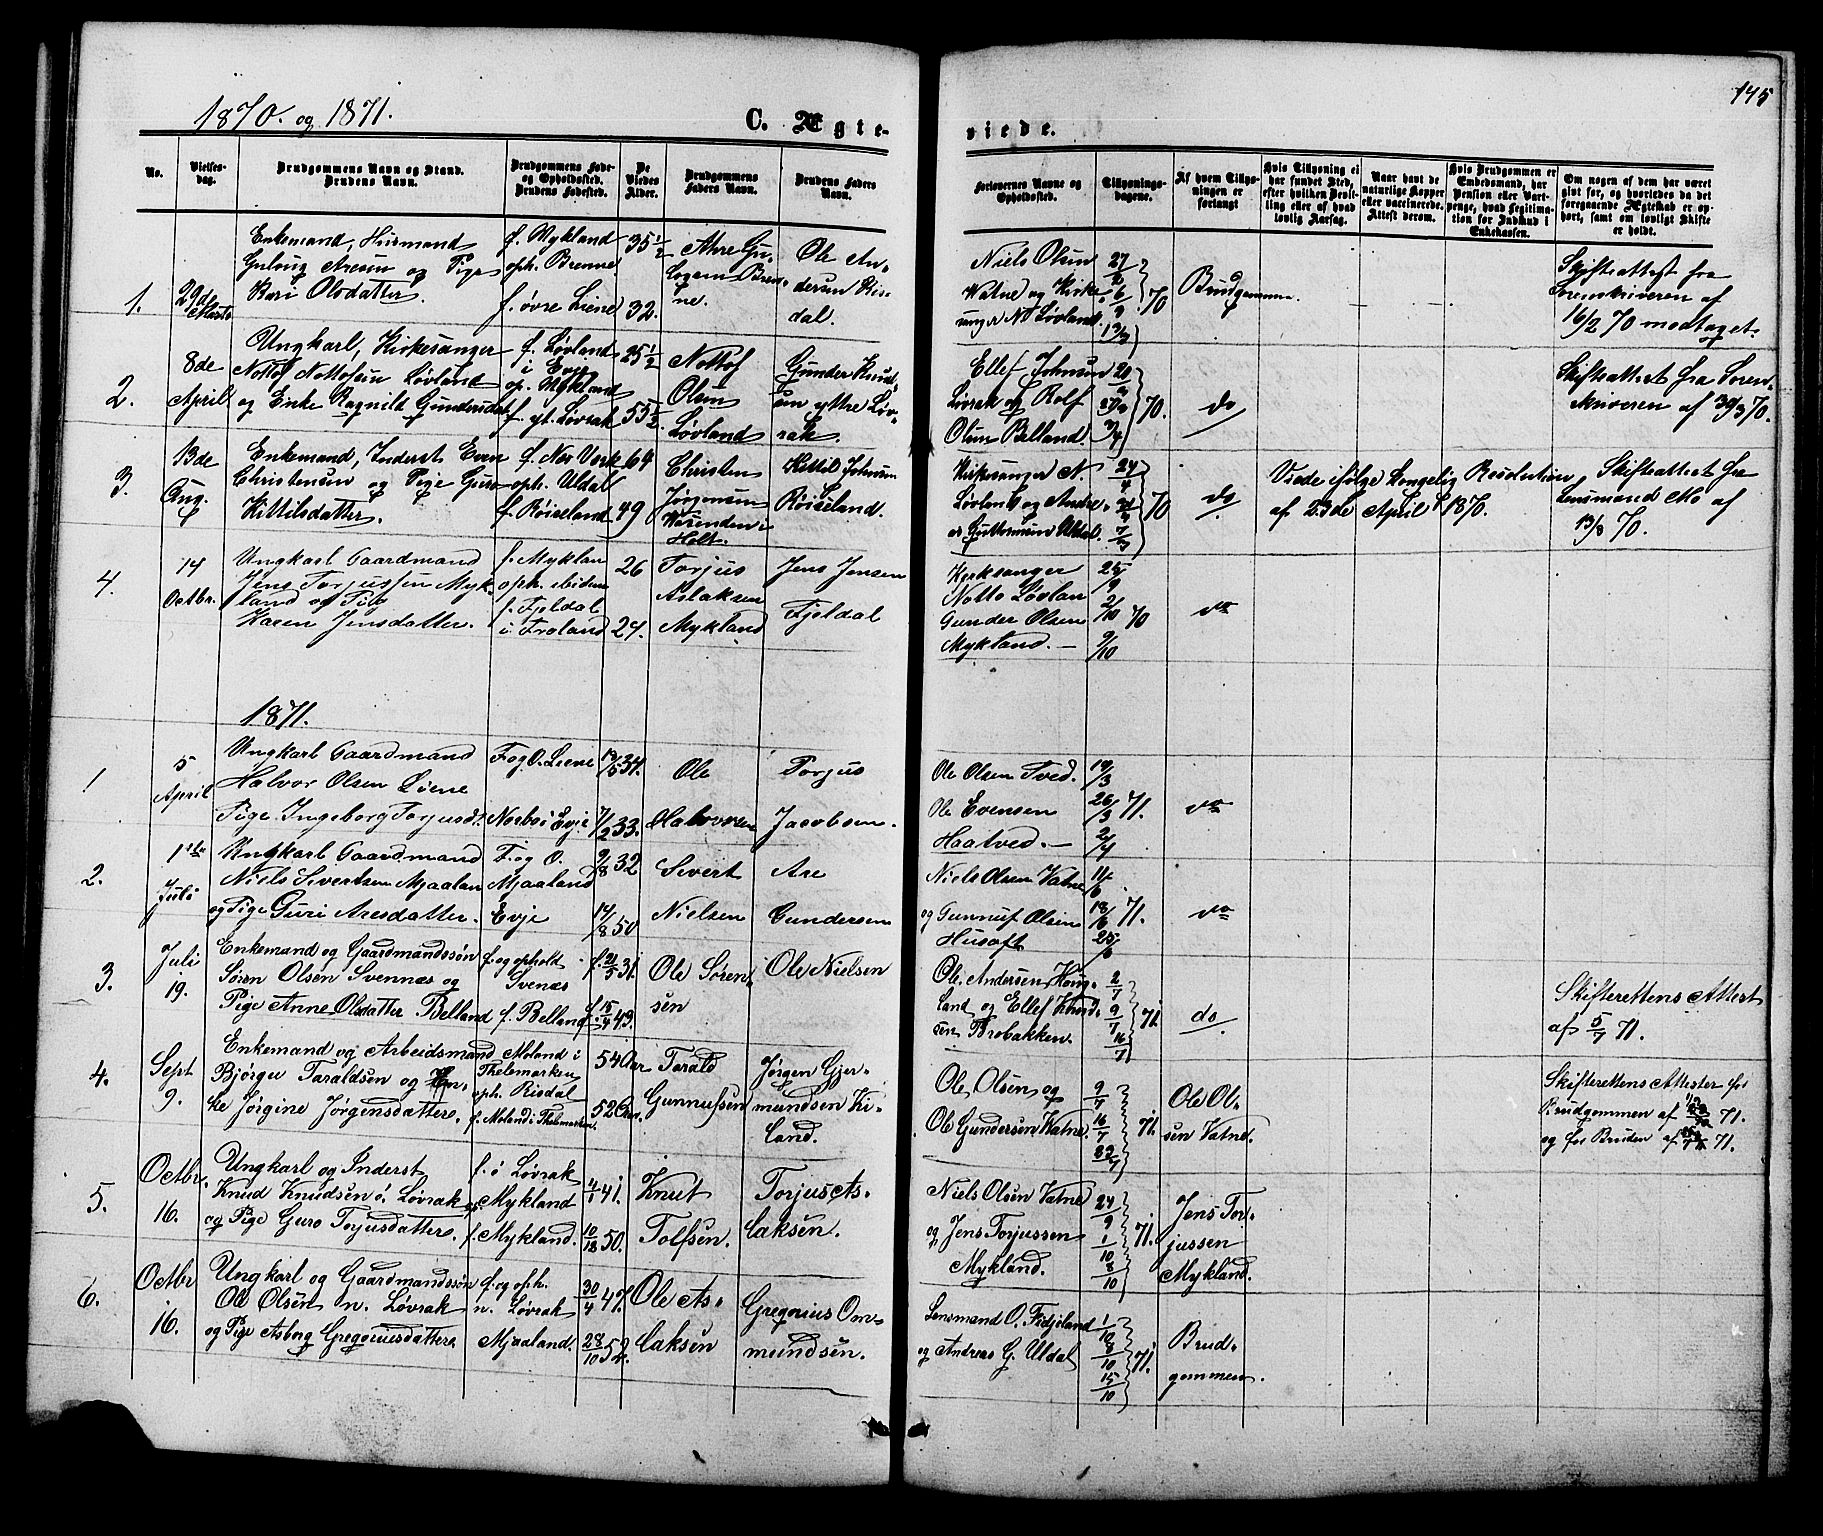 1870. og 1871.
C. Ægteviede.
145
No.
Vielsesdag.
Brudgommens Navn og Stand.
Brudens Navn.
Brudgommens Føde- og Opholdssted.
Brudens Fødested.
De Viedes Alder.
Brudgommens Faders Navn.
Brudens Faders Navn.
Forlovernes Navne og Opholdssted.
Tillysningsdagene.
Af hvem Tillysningen er forlangt
Hvis Tillysning ei har fundet Sted, efter hvilken Bevilling eller af hvad lovlig Aarsag.
Naar havt de naturlige Kopper eller vaccinerede. Attest derom.
Hvis Brudgommen er Embedsmand, har Pension eller Vartpenge, hvad Legitimation for Indskud i Enkekassen.
Om nogen af dem har været gift før, og hvorledes da det foregaaende Ægteskab er ophørt, samt om lovligt Skifte er holdt.
1. 29de Marts
Enkemand, Husmand
Guloug Aresen og Pige
Kari Olsdatter.
f. Mykland
oph. Brenne
f. øvre Liene
35 1/2
32.
Athre Gulogsen Brenne.
Ole Andersen Risdal.
Niels Olsen
Vatne og Kirkesanger N. Løvland.
27/2 6/3 13/3 70
Brudgommen.
Skifteattest fra
Sorenskriveren af
16/2 70 modtaget.
2. 8de April
Ungkarl, Kirkesanger
Nottof Nottofsen Løvland
og Enke Ragnild Gundersdat
f. Løvland
i Evje
op. Mykland
f. yt. Løvrak
25 1/2
55 1/2
Nottof
Olsen
Løvland
Gunder Knudsen yttre Løvrak.
Ellef Johnsen
Løvrak og Rolf
Olsen Belland.
20/3 27/3 3/4 70.
do
Skifteattest fra Sorenskriveren af 30/3 70.
3. 13de Aug.
Enkemand, Inderst Even
Christensen og Pige Guro
Kittilsdatter.
f. Nes Verk
oph. Uldal
f. Røiseland
64
49
Christen
Jørgensen
Holt.
Kittil Johnsen
Røiseland.
Kirkesanger N.
Løvland og Andreas Guttormsen Uldal.
24/4 70
do
Viede ifølge Kongelig Resolution
af 23de April 1870.
Skifteattest fra
Lensmand Mo af
13/8 70.
4. 14 Octbr.
Ungkarl Gaardmand
Jens Torjussen Mykland og Pige
Karen Jensdatter.
f. Myklan
oph. ibidem
f. Fjeldal
i Froland
26
24.
Torjus
Aslaksen
Mykland
Jens Jensen
Fjeldal
Kyrksanger
Notto Løvlan
Gunder Olsen
Mykland. —
25/9 2/10 9/10 70
do
1871.
1 5 April
Ungkarl Gaardmand
Halvor Olsen Liene
Pige Ingeborg Torjusdt.
F. og O. Liene
Norbø i Evje
19/5 34.
7/2 33.
Ole
Halvorsen
Torjus
Jacobsen.
Ole Olsen Tved.
Ole Evensen
Haatved. —
19/3 26/3 2/4 71.
do
2. 1ste Juli
Ungkarl Gaardmand
Niels Sivertsen Mjaalan
og Pige Guri Aresdatter.
F. og O.
Mjaaland
Evje
9/8 32
14/8 50
Sivert
Nielsen
Are
Gundersen
Niels Olsen Vatne
og Gunnuf Olsen
Husoft
11/6 18/6 25/6 71.
do
3. Juli 19.
Enkemand og Gaardmandssøn
Søren Olsen Svennæs og
Pige Anne Olsdatter Belland
f. og ophold
Svenæs
f. Belland
f. 21/5 31.
f. 15/4 49.
Ole Sørensen
Ole Nielsen
Ole Andersen Haugland og Ellef Knudsen Brobakken.
2/7 9/7 16/7 71
do
Skifterettens Attest
af 5/7 71.
4. Sept 9.
Enkemand og Arbeidsmand
Bjørgu Taraldsen og Enke Jørgine Jørgensdatter.
Moland i
Thelemarken
oph. Risdal
f. Moland i Thelemarken.
54 Aar
52 Aar.
Tarald
Gunnufsen
Jørgen Gjermundsen Kiland.
Ole Olsen og
Ole Gundersen Vatne.
9/7 16/7 23/7 71.
Ole Olsen Vatne.
Skifterettens Attester for
Brudgommen af 71.
og for Bruden af 71.
5. Octbr. 16.
Ungkarl og Inderst
Knud Knudsen ö. Løvrak
og Pige Guro Torjusdatter.
f. ö Løvrak
op. Mykland
f. Mykland.
4/1 41.
10/12 50.
Knut
Tolfsen.
Torjus Aslaksen.
Niels Olsen Vatne
og Jens Torjussen
Mykland.
24/9 1/10 8/10 71.
Jens Torjussen
Mykland.
6. Octbr 16.
Ungkarl og Gaardmandssøn
Ole Olsen n. Løvrak
og Pige Asborg Gregoriusdatter.
f. og oph.
n. Løvrak
Mjaaland.
30/4 47.
28/10 52.
Ole Aslaksen
Gregorius Ommundsen.
Lensmand O. Fidjeland
og Andreas G. Uldal
1/10 8/10 15/10 71.
Brudgommen.